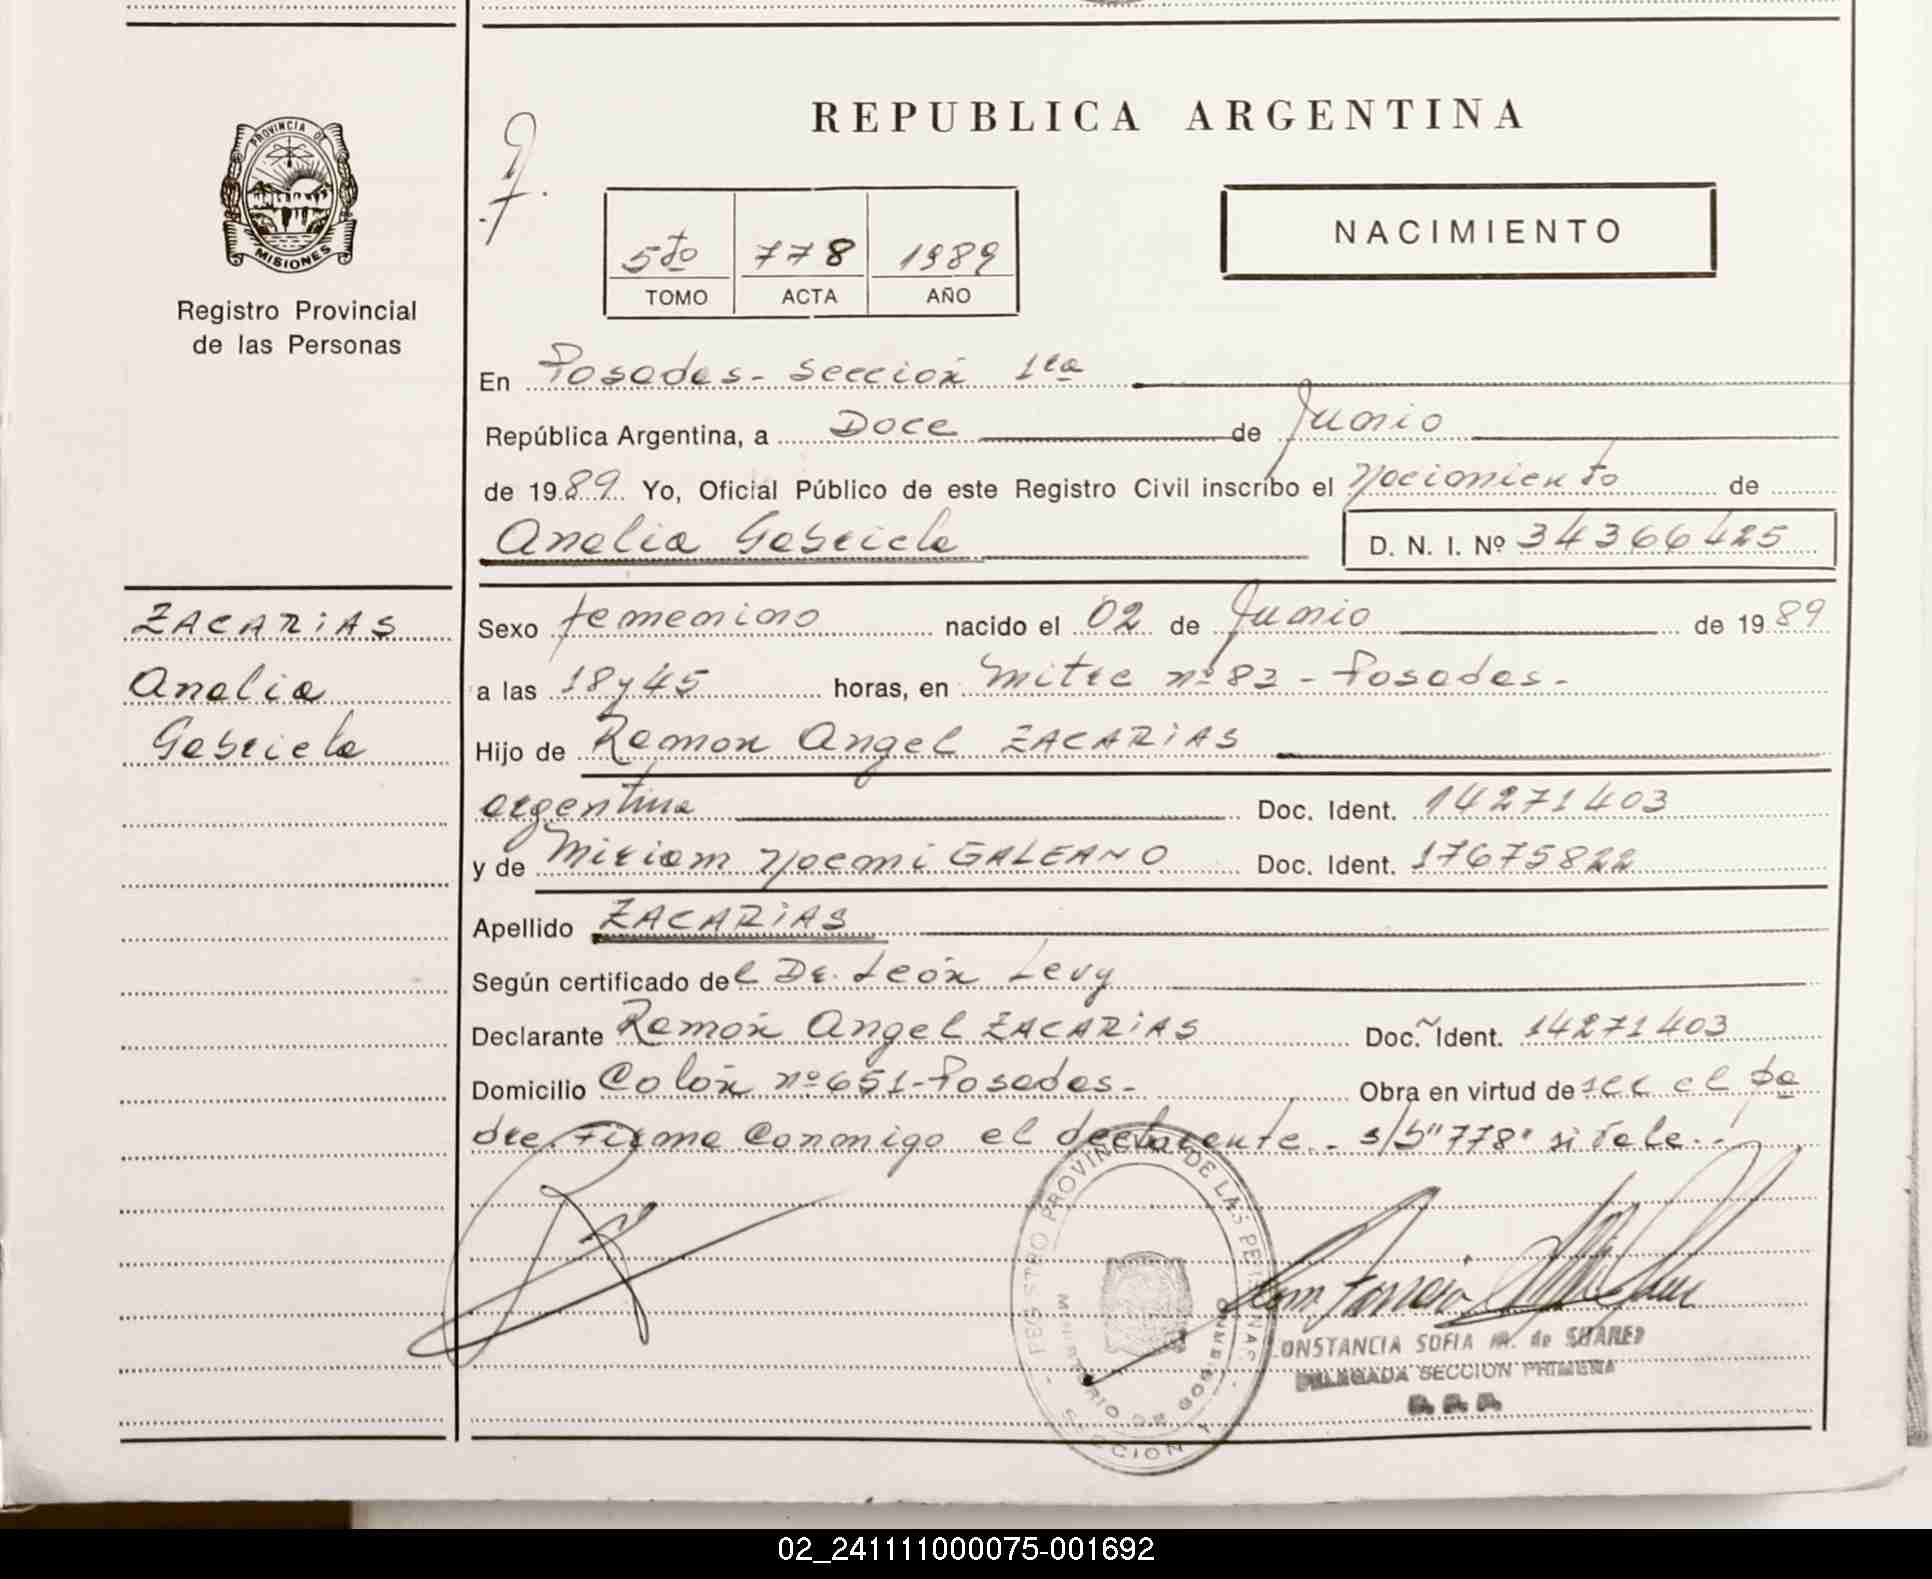 REPUBLICA ARGENTINA
PROVINCIA DE
MISIONES
Registro Provincial
de las Personas
5to 778 1989
TOMO ACTA AÑO
NACIMIENTO
En Posadas - Sección 1ra
República Argentina, a Doce de Junio
de 1989 Yo, Oficial Público de este Registro Civil inscribo el nacimiento de
Analia Gabriela D. N. I. Nº 34366425
ZACARIAS
Analia
Gabriela
Sexo femenino nacido el 02 de Junio de 1989
a las 18 y 45 horas, en Mitre nº 82 - Posadas -
Hijo de Ramon Angel ZACARIAS
argentina Doc. Ident. 14271403
y de Miriam Noemi GALEANO Doc. Ident. 17675822
Apellido ZACARIAS
Según certificado del Dr. León Levy
Declarante Ramón Angel ZACARIAS Doc. Ident. 14271403
Domicilio Colón nº 651 - Posadas - Obra en virtud de ser el pa
dre. Firma conmigo el declarante. - s/b "778" si vale. -
REGISTRO PROVINCIAL DE LAS PERSONAS
MINISTERIO DE GOBIERNO
SECCION
CONSTANCIA SOFIA M. de SUAREZ
DELEGADA SECCION PRIMERA
02_241111000075-001692